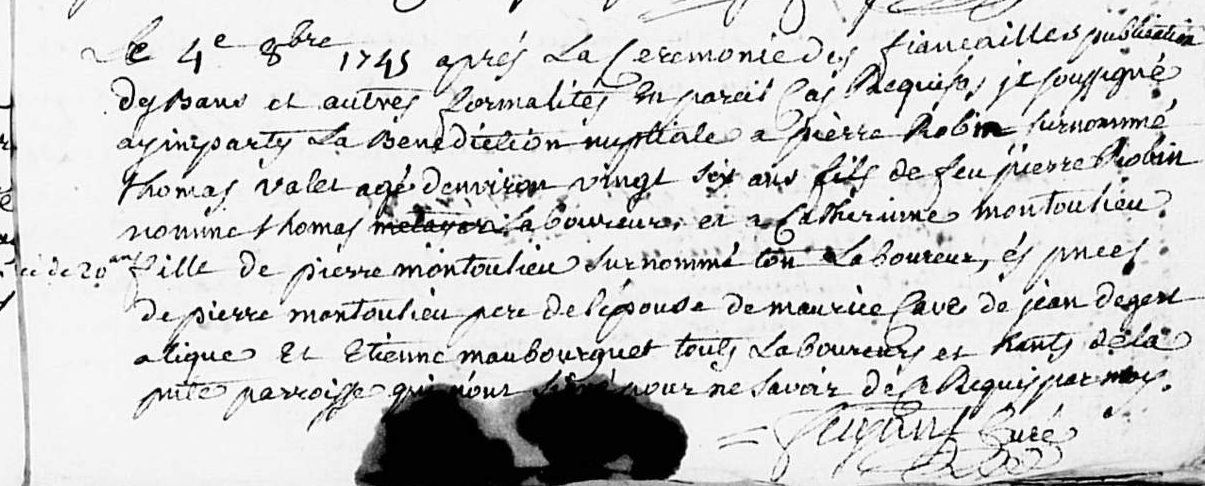 Le 4e 8bre 1745 aprés La Ceremonie des fiancailles publication
des Bans et autres formalités En pareil Cas Requises je soussigné
ay imparty La Benediction nuptiale a pierre Robin surnommé
thomas valet agé denviron vingt six ans fils de feu pierre Robin
nommé thomas metayer Laboureur, et a Catherinne montoulieu
de 20 an fille de pierre montoulieu surnommé ton Laboureur, és pnces
de pierre montoulieu pere de l'épouse de maurice Cave de jean degert
atique Et Etienne maubourguet touts Laboureurs et hants de la
pnte parroisse qui n'ont signé pour ne savoir de ce Requis par moy.
Curé